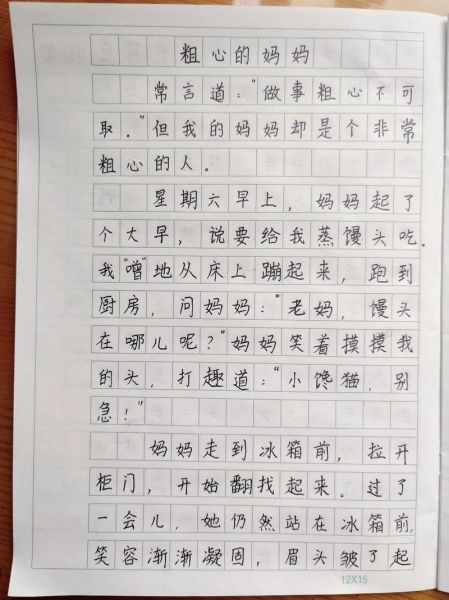 粗心的妈妈
常言道："做事粗心不可
取。"但我的妈妈却是个非常
粗心的人。
星期六早上，妈妈起了
个大早，说要给我蒸馒头吃。
我"噌"地从床上蹦起来，跑到
厨房，问妈妈："老妈，馒头
在哪儿呢？"妈妈笑着摸摸我
的头，打趣道："小馋猫，别
急！"
妈妈走到冰箱前，拉开
柜门，开始翻找起来。过了
一会儿，她仍然站在冰箱前，
笑容渐渐凝固，眉头皱了起
12X15